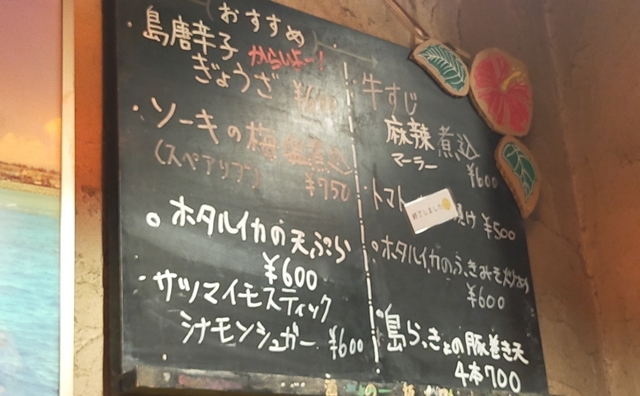 おすすめ
・島唐辛子
からいよー!
ぎょうざ
¥600
・ソーキの梅塩煮込
(スペアリブ)
¥750
○ホタルイカの天ぷら
¥600
・サツマイモスティック
シナモンシュガー ¥600
牛すじ
麻辣煮込
マーラー
¥600
トマト
終了しました
¥500
・ホタルイカのふきみそ
¥600
島らっきょの豚巻き天
4本700